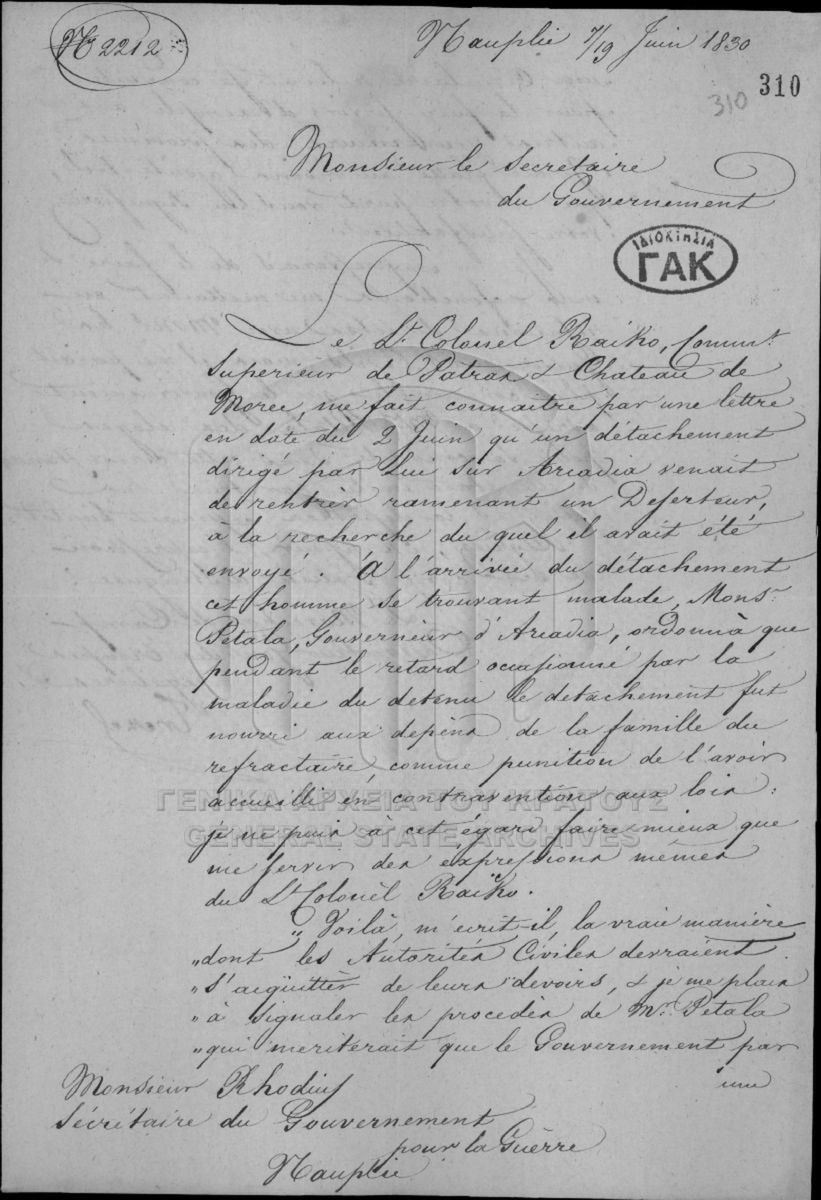 № 2212
Nauplie 7/19 Juin 1830
310
310
Monsieur le Secretaire
du Gouvernement
ΙΔΙΟΚΤΗΣΙΑ
ΓΑΚ
Le Lt. Colonel Raiko, Commt.
Superieur de Patras & Chateau de
Moree, me fait connaitre par une lettre
en date du 2 Juin qu'un détachement
dirigé par Lui sur Arcadia venait
de rentrer ramenant un Deserteur,
à la recherche du quel il avait été
envoyé. A l'arrivée du détachement
cet homme se trouvant malade, Monsr.
Petala, Gouverneur d'Arcadia, ordonna que
pendant le retard occasionné par la
maladie du detenu le detachement fut
nourri aux depens de la famille du
refractaire, comme punition de l'avoir
accueilli en contravention aux lois:
je ne puis à cet égard faire mieux que
me servir des expressions mêmes
du Lt. Colonel Raiko.
„ Voilà, m'ecrit-il, la vraie manière
„ dont les Autorités Civiles devraient
„ s'aiquitter de leurs devoirs, & je me plais
„ à signaler les procedès de Mr. Petala
„ qui meriterait que le Gouvernement par
une
Monsieur Rhodius
Sécrétaire du Gouvernement
pour la Guèrre
Nauplie
ΓΕΝΙΚΑ ΑΡΧΕΙΑ ΤΟΥ ΚΡΑΤΟΥΣ
GENERAL STATE ARCHIVES